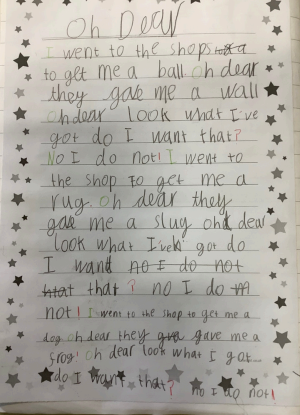 Oh Dear
I went to the shops to a
to get me a ball oh dear
they gave me a wall
oh dear look what I've
got do I want that?
No I do not! I went to
the shop to get me a
rug. oh dear they
gave me a slug oh dear
look what I've got do
I want no I do not
that that? no I do
not! I went to the shop to get me a
dog. oh dear they gave me a
frog! oh dear look what I got...
do I want that? no I do not!